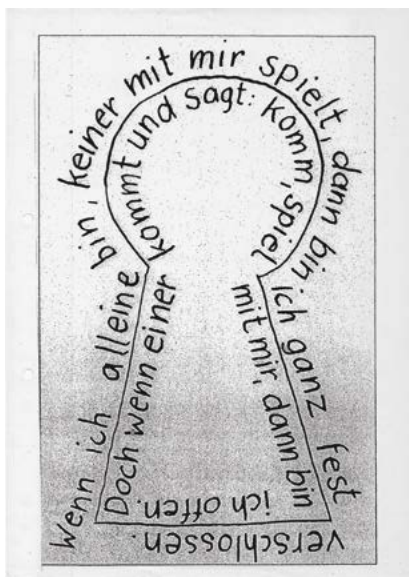 Wenn ich alleine bin, keiner mit mir spielt, dann bin ich ganz fest verschlossen.
Doch wenn einer kommt und sagt: komm, spiel mit mir, dann bin ich offen.